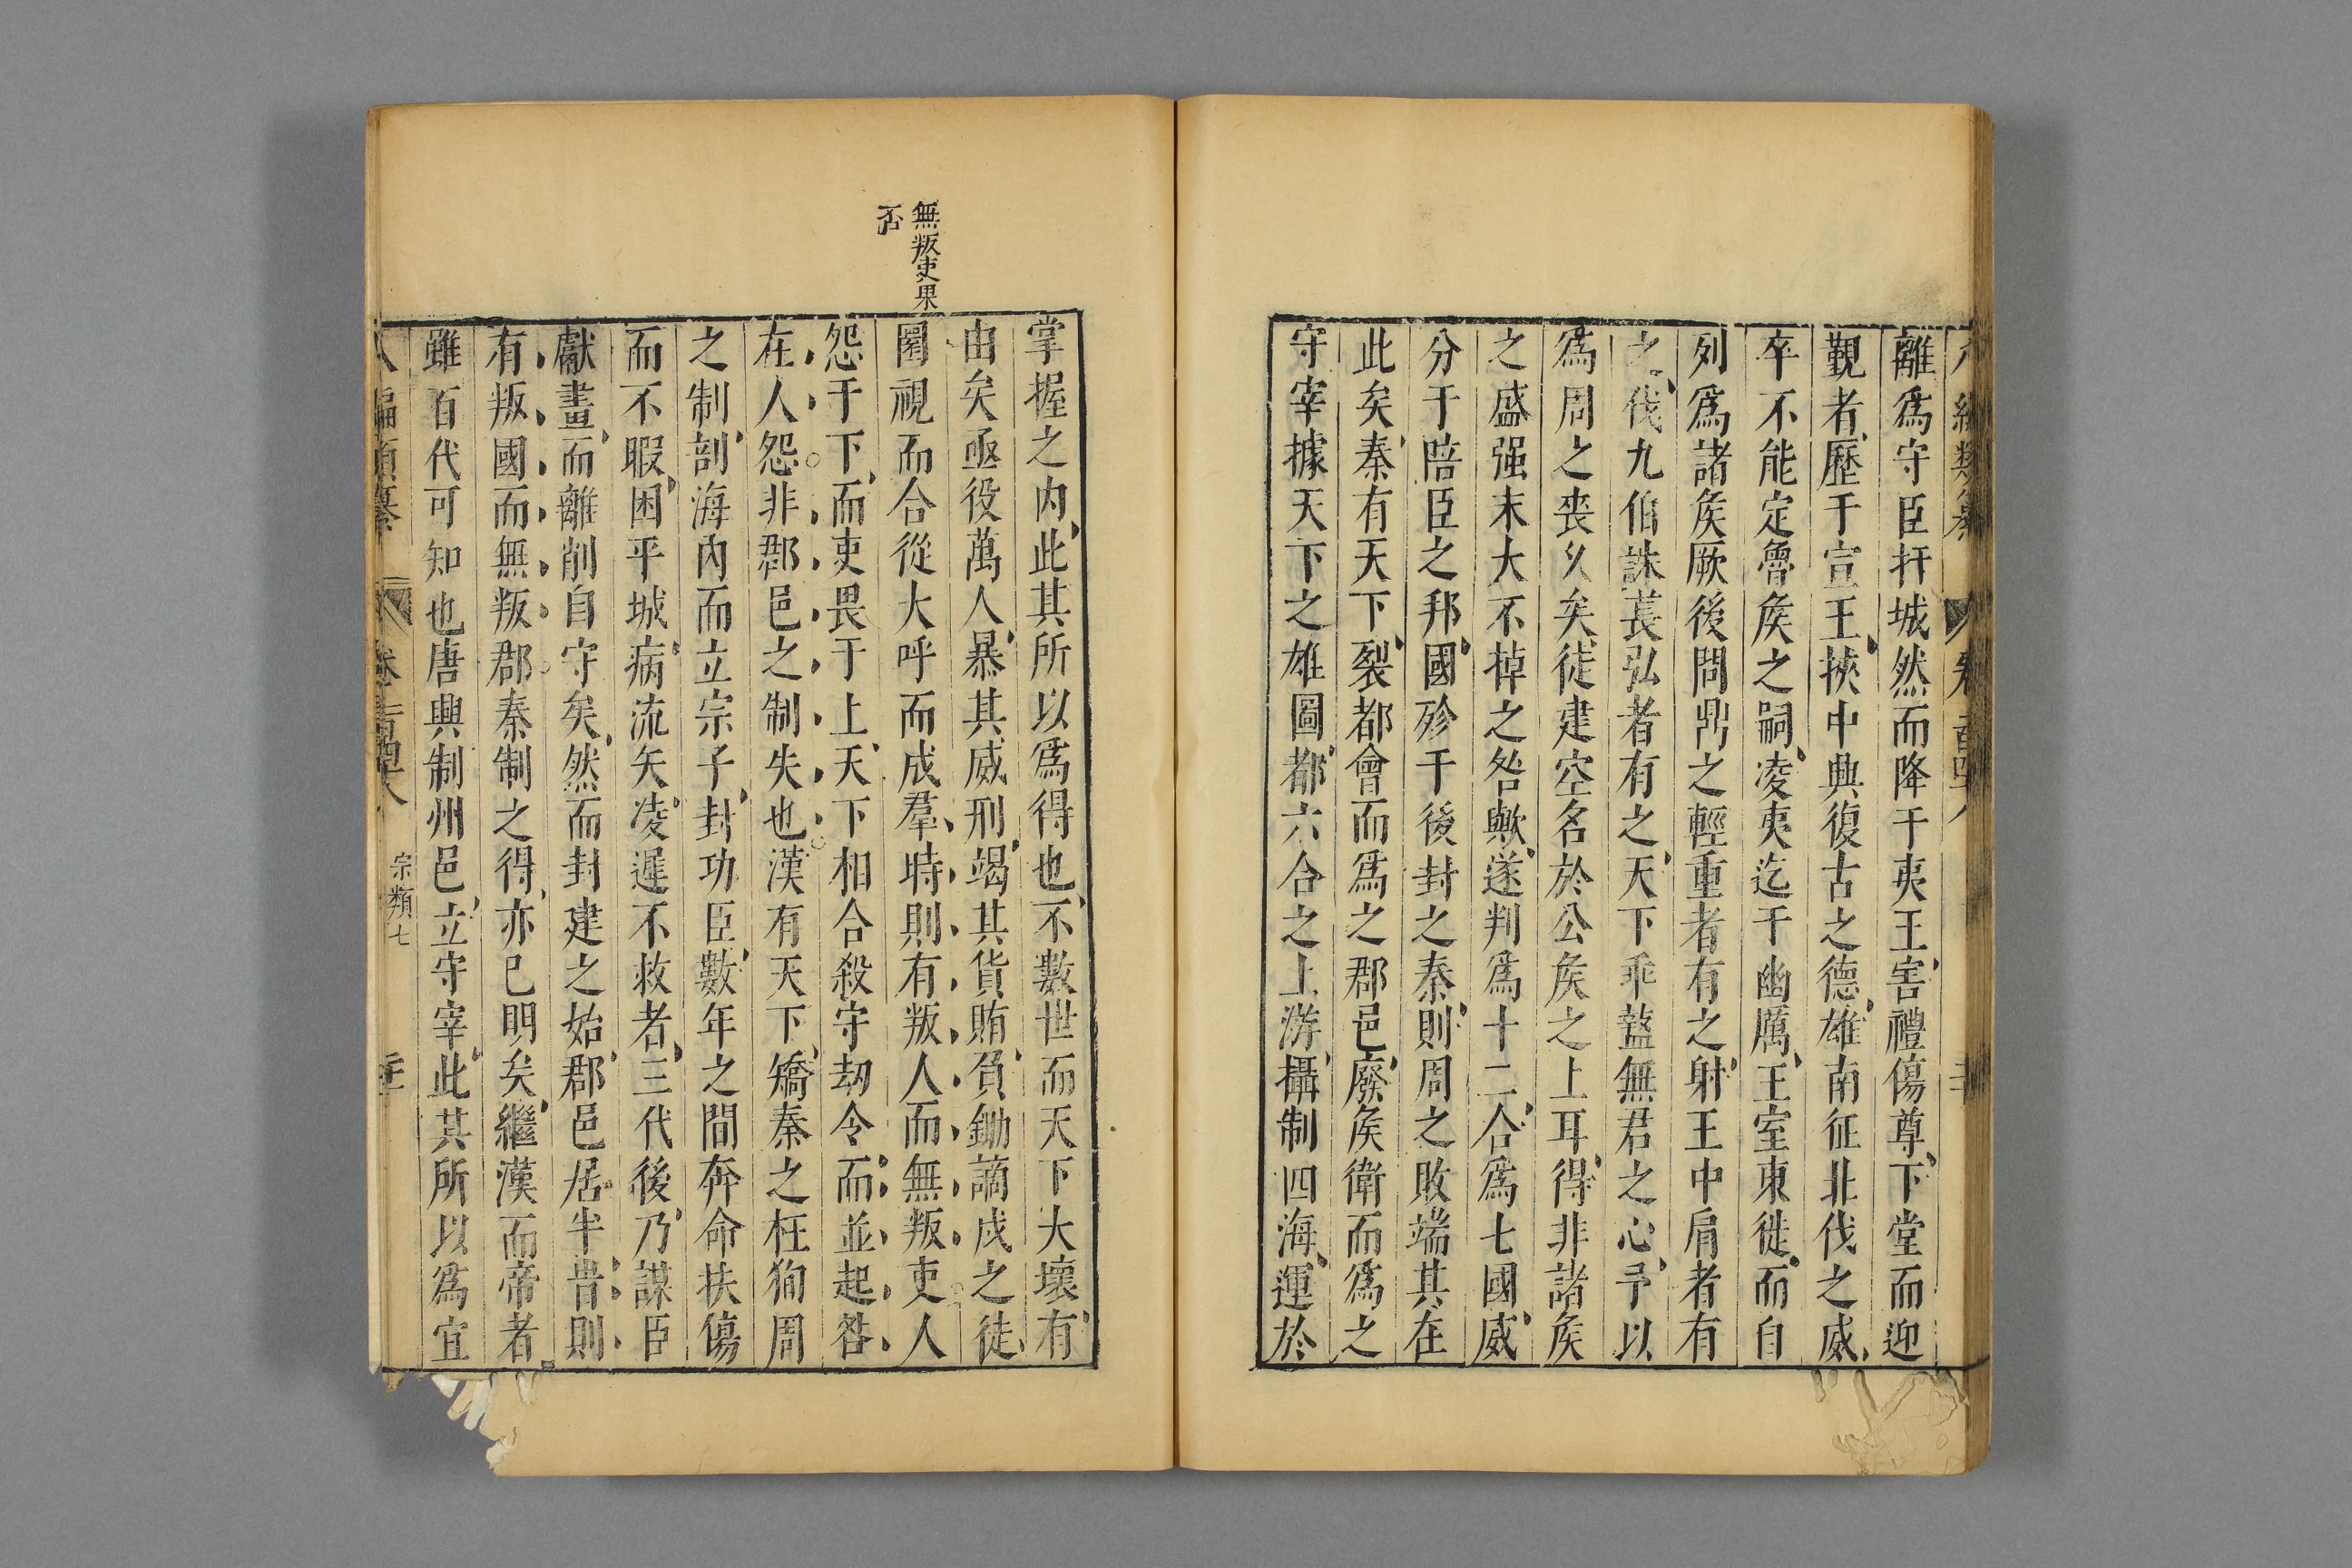 離爲守臣扞城然而降于夷王害禮傷尊下堂而迎
覲者歷于宣王挾中興復古之德雄南征北伐之威
卒不能定魯矦之嗣凌夷迄于幽厲王室東徙而自
列爲諸矦厥後問鼎之輕重者有之射王中肩者有
之伐九伯誅萇弘者有之天下乖盭無君之心予以
爲周之喪乆矣徒建空名於公矦之上耳得非諸矦
之盛强末大不掉之咎歟遂判爲十二合爲七國威
分于陪臣之邦國殄于後封之秦則周之敗端其在
此矣秦有天下裂都會而爲之郡邑廢矦衛而爲之
守宰據天下之雄圖都六合之上游攝制四海運於
掌握之内此其所以爲得也不數世而天下大壞有
由矣亟役萬人暴其威刑竭其貨賄負鋤謫戍之徒
圜視而合從大呼而成羣時則有叛人而無叛吏人
無叛吏果
否
怨于下而吏畏于上天下相合殺守刼令而並起咎
在人怨非郡邑之制失也漢有天下矯秦之枉狥周
之制剖海內而立宗子封功臣數年之間奔命扶傷
而不暇困平城病流矢凌遲不救者三代後乃謀臣
獻畫而離削自守矣然而封建之始郡邑居半旹則
有叛國而無叛郡秦制之得亦已明矣繼漢而帝者
雖百代可知也唐興制州邑立守宰此其所以爲宜
八編類纂 卷二百四十八 宗類七